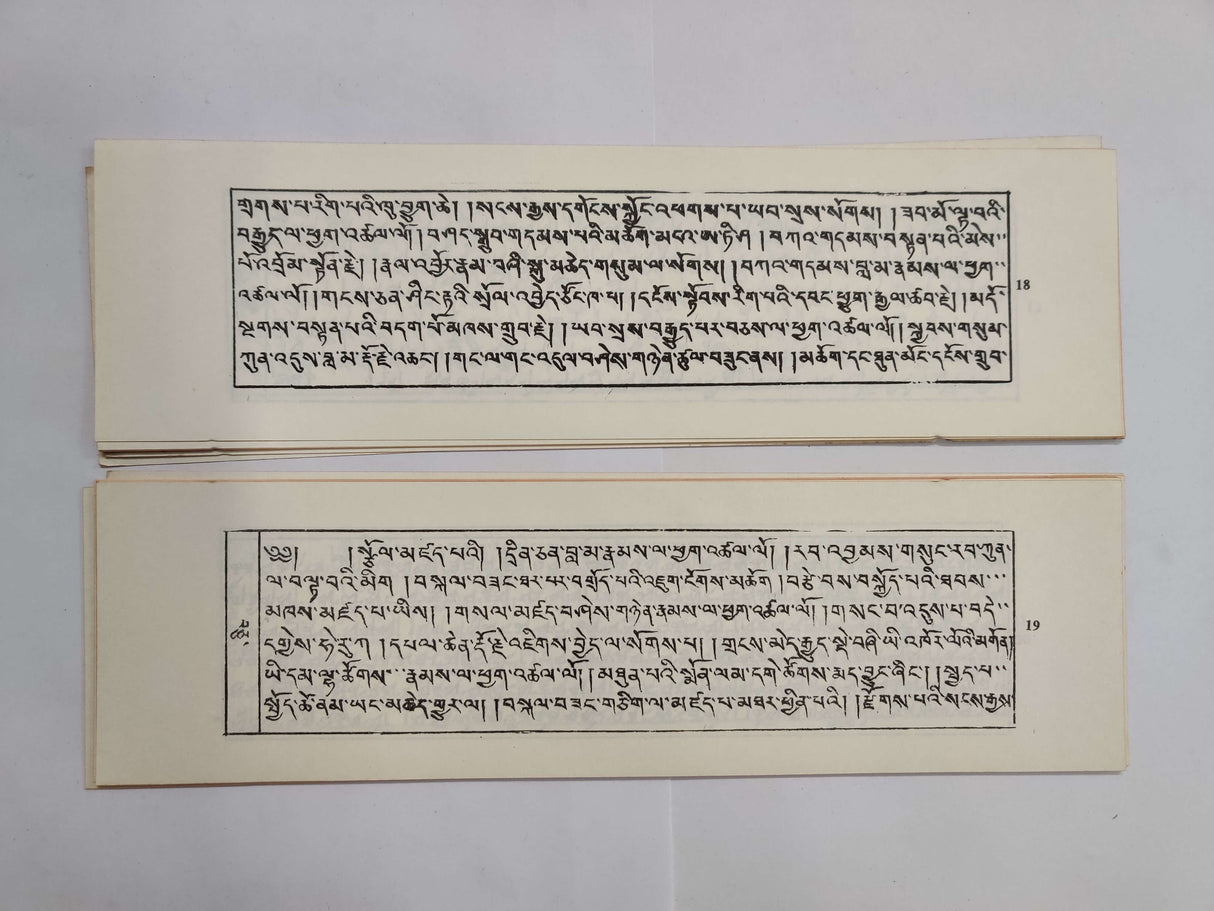 གྲགས་པ་རིག་པའི་ཁུ་བྱུག་ཆེ། །སངས་རྒྱས་དགོངས་སྐྱོང་འཕགས་པ་ཡབ་སྲས་སོགས། །ཟབ་མོ་ལྟ་བའི་
བརྒྱུད་ལ་ཕྱག་འཚལ་ལོ། །བཤད་སྒྲུབ་གདམས་པའི་མཚོག་མངའ་ཨ་ཏི་ཤ །བཀའ་གདམས་བསྟན་པའི་མེས་
པོ་འབྲོམ་སྟོན་རྗེ། །རྣལ་འབྱོར་རྣམ་བཞི་སྐུ་མཆེད་གསུམ་ལ་སོགས། །བཀའ་གདམས་བླ་མ་རྣམས་ལ་ཕྱག་
འཚལ་ལོ། །གངས་ཅན་ཤིང་རྟའི་སྲོལ་འབྱེད་ཙོང་ཁ་པ། །དངོས་སྟོབས་རིག་པའི་དབང་ཕྱུག་རྒྱལ་ཚབ་རྗེ། །མདོ་
སྔགས་བསྟན་པའི་བདག་པོ་མཁས་གྲུབ་རྗེ། །ཡབ་སྲས་བརྒྱུད་པར་བཅས་ལ་ཕྱག་འཚལ་ལོ། །སྐྱབས་གསུམ་
ཀུན་འདུས་བླ་མ་རྡོ་རྗེ་འཆང་། །གང་ལ་གང་འདུལ་བཤེས་གཉེན་ཚུལ་བཟུང་ནས། །མཆོག་དང་ཐུན་མོང་དངོས་གྲུབ་
18
༄༅། །སྩོལ་མཛད་པའི། །དྲིན་ཅན་བླ་མ་རྣམས་ལ་ཕྱག་འཚལ་ལོ། །རབ་འབྱམས་གསུང་རབ་ཀུན་
ལ་བལྟ་བའི་མིག །བསྐལ་བཟང་ཐར་པར་བགྲོད་པའི་འཇུག་ངོགས་མཆོག །བརྩེ་བས་བསྐྱོད་པའི་ཐབས་
མཁས་མཛད་པ་ཡིས། །གསལ་མཛད་བཤེས་གཉེན་རྣམས་ལ་ཕྱག་འཚལ་ལོ། །གསང་བ་འདུས་པ་བདེ་
དགྱེས་ཧེ་རུ་ཀ །དཔལ་ཆེན་རྡོ་རྗེ་འཇིགས་བྱེད་ལ་སོགས་པ། །གྲངས་མེད་རྒྱུད་སྡེ་བཞི་ཡི་འཁོར་ལོའི་མགོན།
ཡི་དམ་ལྷ་ཚོགས་རྣམས་ལ་ཕྱག་འཚལ་ལོ། །མཐུན་པའི་སྨོན་ལམ་དགེ་ཚོགས་རྨད་བྱུང་ཞིང་། །སྦྱང་པ་
སྤྱོད་ཚེ་ནམ་ཡང་མཆེད་གྱུར་ལ། །བསྐལ་བཟང་གཅིག་ལ་མཛད་པ་མཐར་ཕྱིན་པའི། །རྫོགས་པའི་སངས་རྒྱས་
19